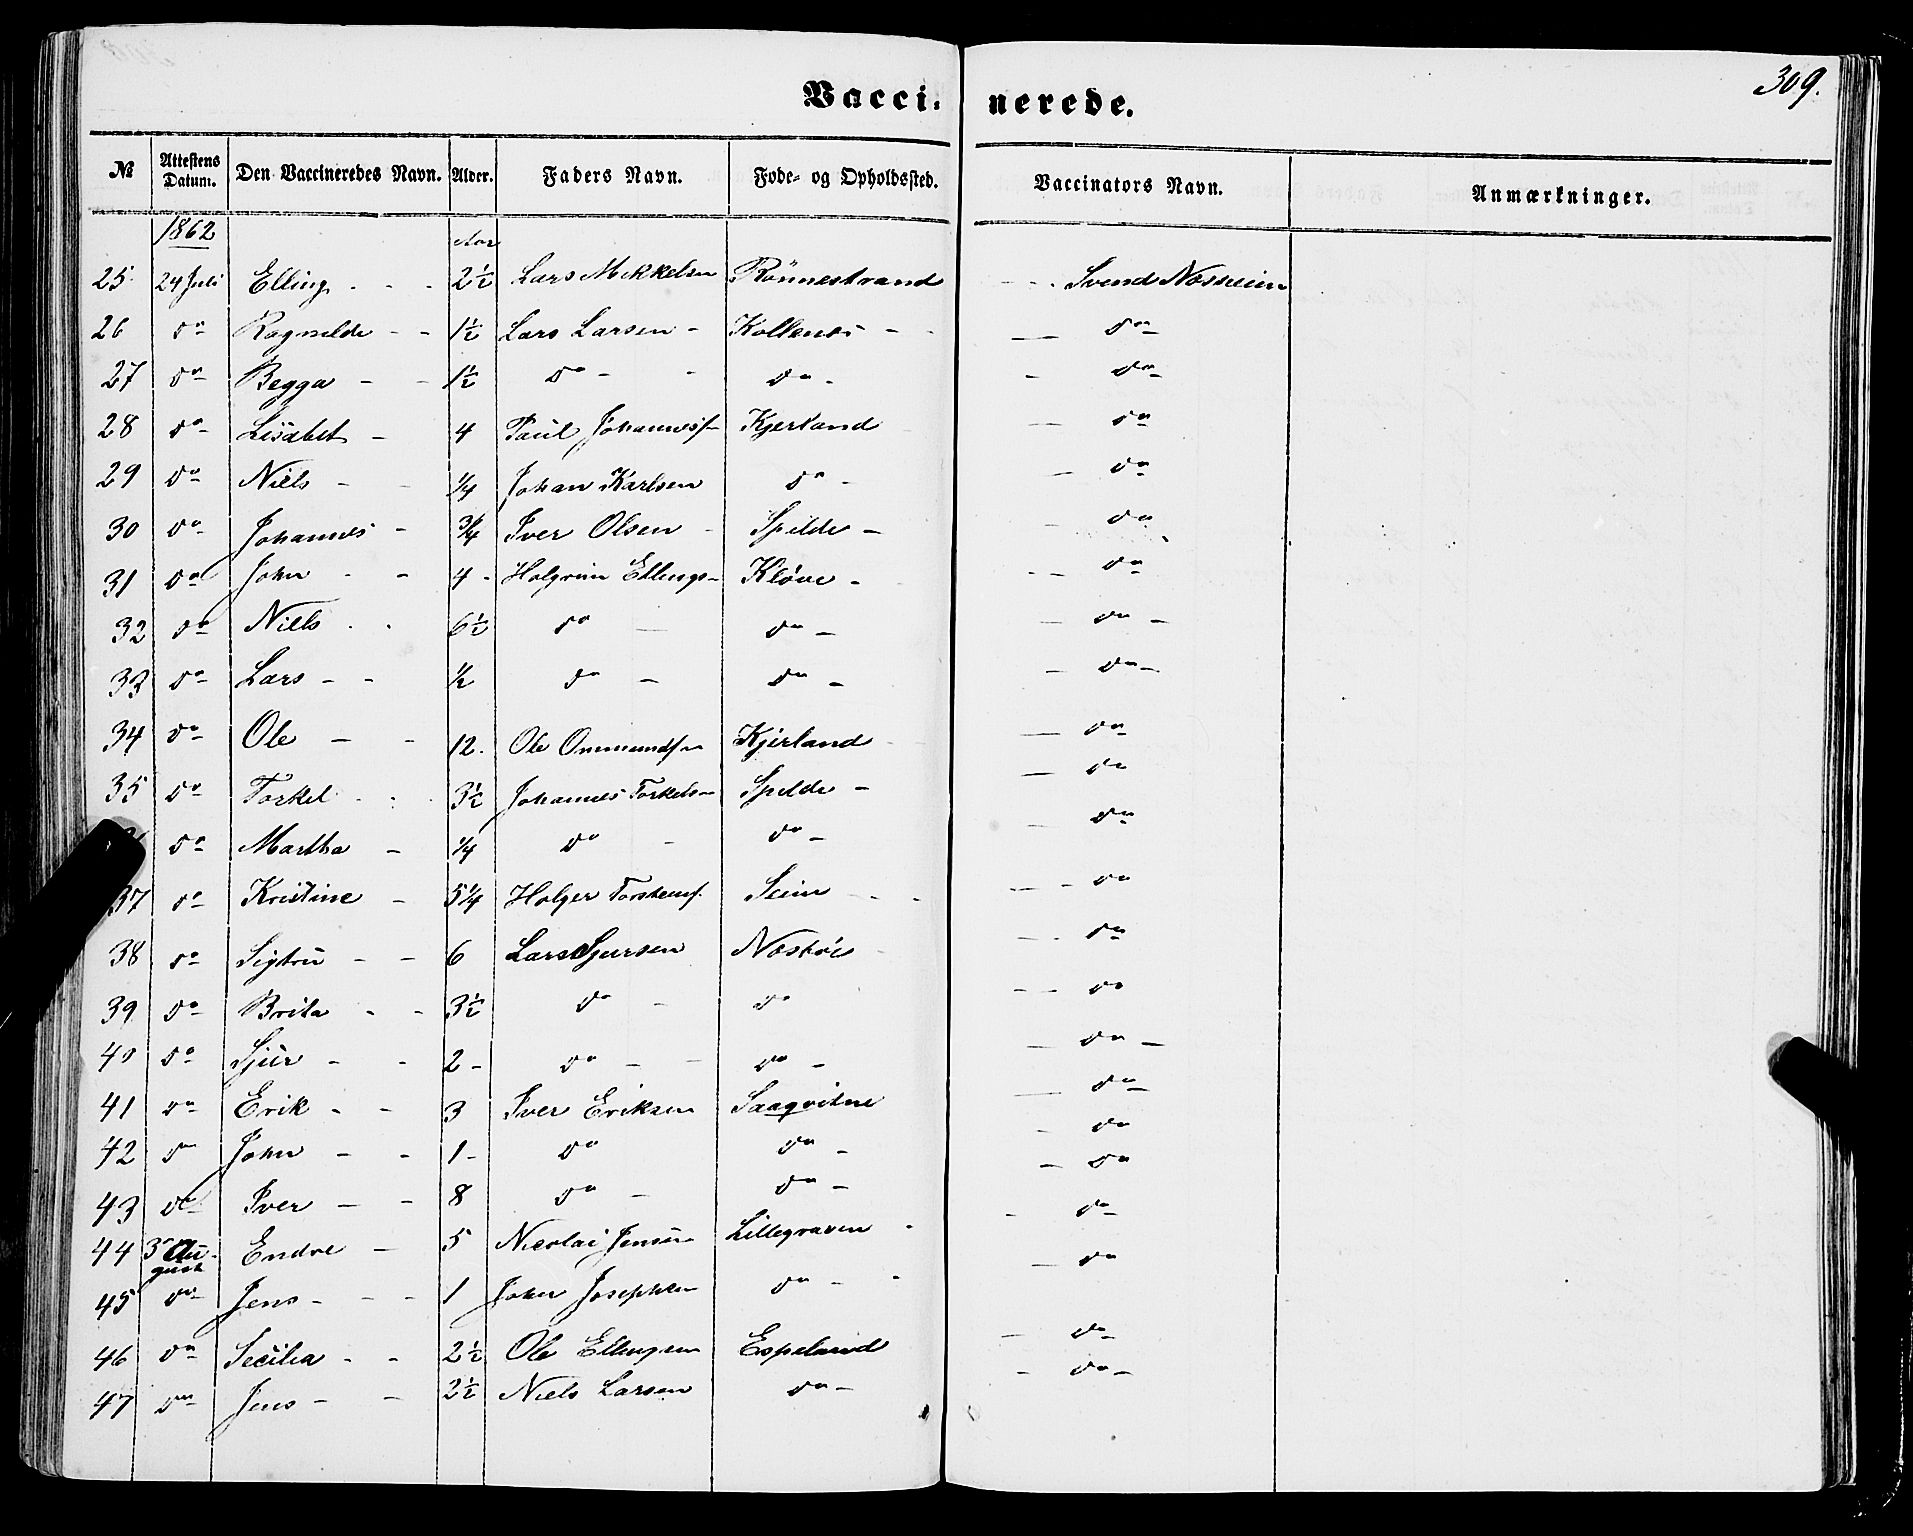 309.
Vaccinerede.
№ Attestens Datum. Den Vaccineredes Navn. Alder. Faders Navn. Føde- og Opholdssted. Vaccinators Navn. Anmærkninger.
1862 Aar
25 24 Juli Elling - - - 2½ Lars Mikkelsen Rönnestrand - - . Svend
26 do Ragnilde - - 1½ Lars Larsen - - - — do
27 do Begga - - 1½ do - - do - - do
28 do Lisabet - 4 Paul Kjerland — do
29 do Niels - - ¼ Johan Karlsen do - — do
30 do Johannes - ¾ Iver Olsen - Spilde - - do
31 do John - - 4 - Holgrim Ellings- Kløve - - - do
32 do Niels - - 6½ do — do - — do -
33 do Lars - - ½ do - do - - do -
34 do Ole - - 12. Ole Kjerland — do
35 do Torkel - - 3½ Johannes Torkels- Spilde - — do
do Martha - ¼ do - do - - do
37 do Kristine - 5¼ Holger Seim - - — - do
38 do Sigtru - - 6 Lars Sjursen - - do
39 do Brita - - 3½ do - do - - do
40 do Sjur - - 2 - do - - do - — do -
41 do Erik - - 3 Iver Eriksen Saaqvitne — do
42 do John - - 1 - do do - - do
43 do Iver - - 8 do - do - - do
44 3 August Endre - 5 Nicolai Jensen Lillegraven - - do
45 do Jens - - - 1 John Josephsen do - - — do
46 do Secilia - - 2½ Ole Ellingsen Espeland — do
47 do Jens - - 2½ Niels Larsen do - - do -